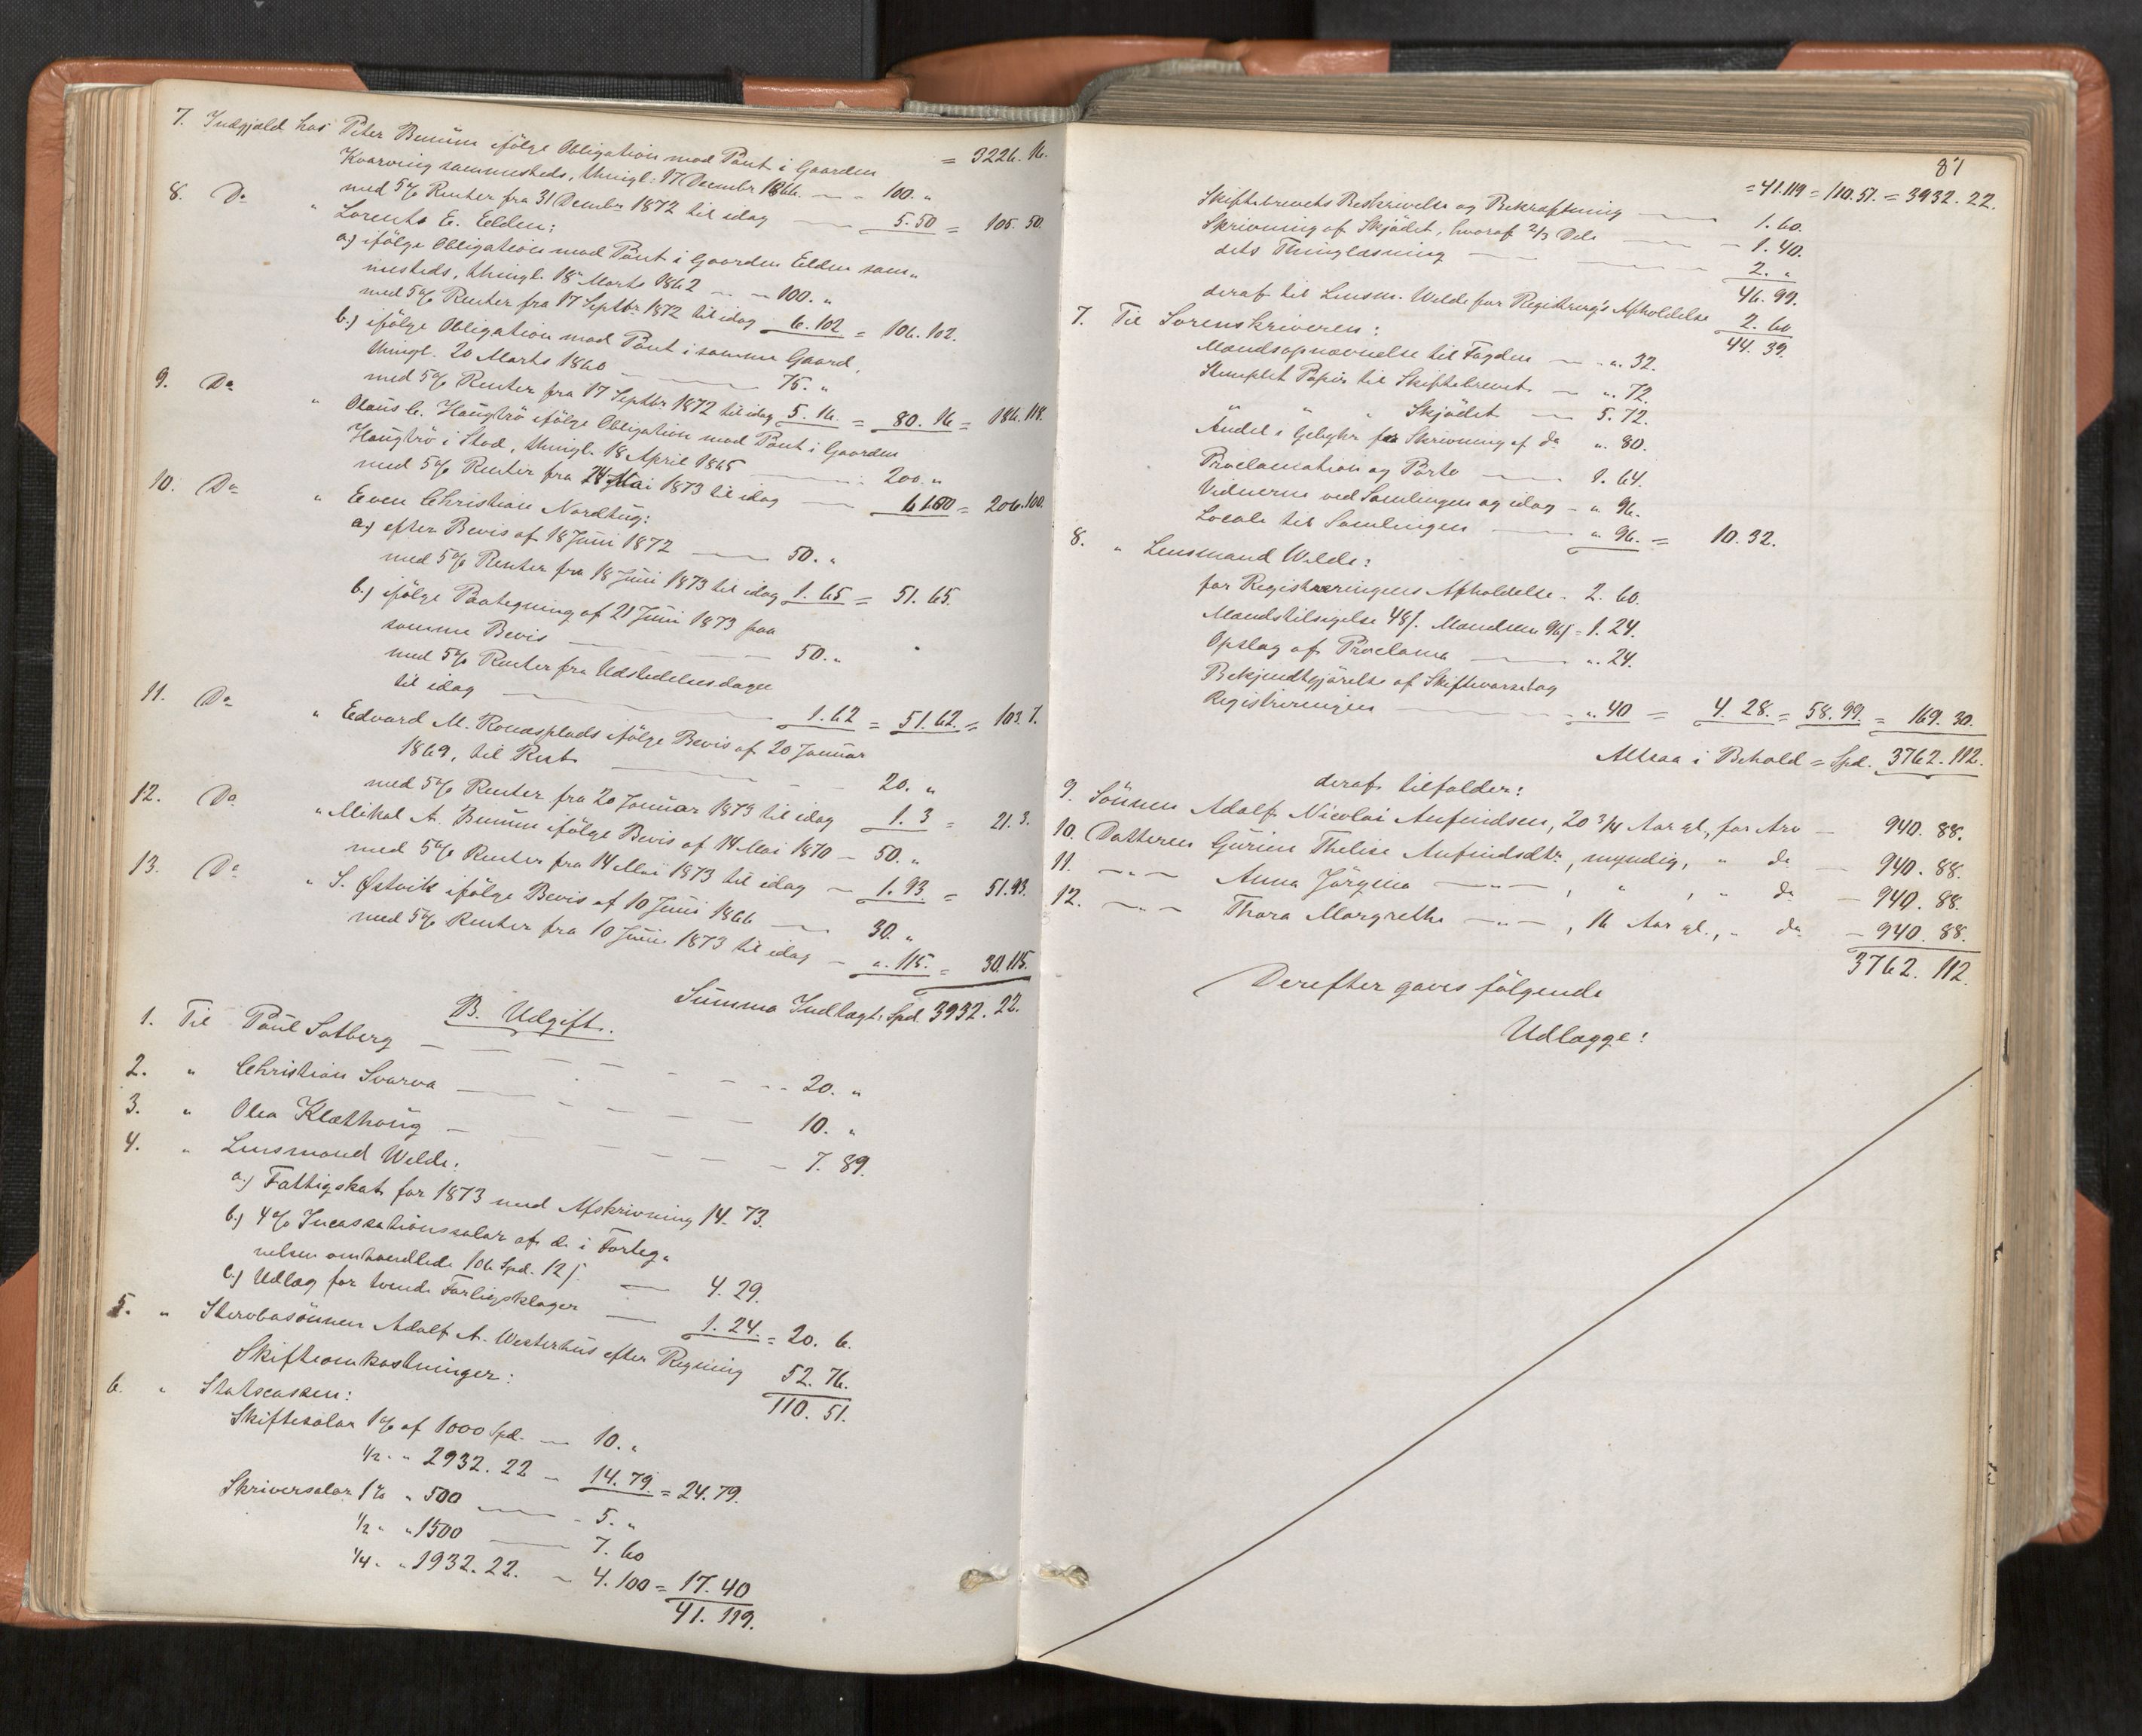 = 3226. 16.
7. Indgjæld hos Peter Bunum ifølge Obligation med Pant i Gaarden
Kvarving sammesteds, thingl: 17 Decembr 1866. — — 100. „
med 5% Renter fra 31 Decembr 1872 til idag — 5. 50 = 105. 50.
8. Do „ Lorents E. Elden:
a) ifølge Obligation med Pant i Gaarden Elden sam-
mesteds, thingl. 18 Marts 1862 — — 100. „
med 5% Renter fra 17 Septbr 1872 til idag 6. 102 = 106. 102.
b.) ifølge Obligation med Pant i samme Gaard,
thingl. 20 Marts 1860 — 75. „
med 5% Renter fra 17 Septbr 1872 til idag 5. 16. = 80. 16 = 186. 118.
9. Do „ Olaus C. Haugtrø ifølge Obligation med Pant i Gaarden
Haugtrø i Stod, thingl. 18 April 1865 — 200. „
med 5% Renter fra 24 Mai 1873 til idag — 6 100 = 206. 100.
10. Do „ Even Christian Nordtug:
a) efter Bevis af 18 Juni 1872 — 50. „
med 5% Renter fra 18 Juni 1873 til idag 1. 65 = 51. 65.
b.) ifølge Paategning af 21 Juni 1873 paa
samme Bevis — 50. „
med 5% Renter fra Udstedelsesdagen
til idag — 1. 62 = 51. 62. = 103. 7.
11. Do „ Edvard M. Ronæsplads ifølge Bevis af 20 Januar
1869, til Rest — 20. „
med 5% Renter fra 20 Januar 1873 til idag 1. 3 = 21. 3.
12. Do „ Mikal A. Bunum ifølge Bevis af 14 Mai 1870 — 50. „
med 5% Renter fra 14 Mai 1873 til idag — 1. 93. = 51. 93.
13. Do „ S. Østvik ifølge Bevis af 10 Juni 1866 — 30. „
med 5% Renter fra 10 Juni 1873 til idag — „. 115. = 30. 115.
Summa Indtægt: Spd. 3932. 22.
B. Udgift.
1. Til Paul Salberg — 20. „
2. „ Christian Svarva — 10. „
3. „ Olea Klæthaug — 7. 89.
4. „ Lensmand Welde:
a.) Fattigskat for 1873 med Afskrivning 14. 73.
b.) 4% Incassationssalær af de i Forteg-
nelsen omhandlede 106 Spd. 12 ß. — 4. 29.
c.) Udlæg for tvende Forligsklager — 1. 24. = 20. 6.
5. „ Sterbosønnen Adolf A. Westerhus efter Regning 52. 76.
110. 51.
Skifteomkostninger:
6. „ Statscassen:
Skiftesalær 1% af 1000 Spd. — 10. „
1/2 „ „ 2932. 22 — 14. 79. = 24. 79.
Skriversalær 1% „ 500 — 5. „
1/2 „ „ 1500 — 7. 60
1/4 „ „ 1932. 22. — 4. 100 = 17. 40
41. 119.
87
= 41. 119 = 110. 51. = 3932. 22.
Skiftebrevets Beskrivelse og Bekræftning — 1. 60.
Skrivning af Skjødet, hvoraf 2/3 Dele — 1. 40.
dets Thinglæsning — 2. „
46. 99.
deraf til Lensm. Welde for Registrerg's Afholdelse 2. 60
44. 39.
7. Til Sorenskriveren:
Mandsopnævnelse til Fogden — „. 32.
Stemplet Papir til Skiftebrevet — „. 72.
„ „ „ Skjødet — 5. 72.
Andel i Gebyhr for Skrivning af do „. 80.
Proclamation og Porto — 1. 64.
Vidnerne ved Samlingen og idag — „ 96.
Locale til Samlingen — „ 96. = 10. 32.
8. „ Lensmand Welde:
for Registreringens Afholdelse — 2. 60.
Mandstilsigelse 48 ß. Mændene 96 ß = 1. 24.
Opslag af Proclama — „. 24.
Bekjendtgjørelse af Skiftevarsel og
Registreringen — „. 40 = 4. 28. = 58. 99. = 169. 30.
Altsaa i Behold = Spd. 3762. 112.
deraf tilfalder:
9. Sønnen Adolf Nicolai Anfindsen, 20 3/4 Aar gl., for Arv — 940. 88.
10. Datteren Gurine Theline Anfindsdtr, myndig, „ do — 940. 88.
11. — „ — Anna Jørgina — „ — , „ , „ do — 940. 88.
12. — „ — Thora Margrethe — „ — , 16 Aar gl., „ do — 940. 88.
3762. 112.
Derefter gaves følgende
Udlægge: